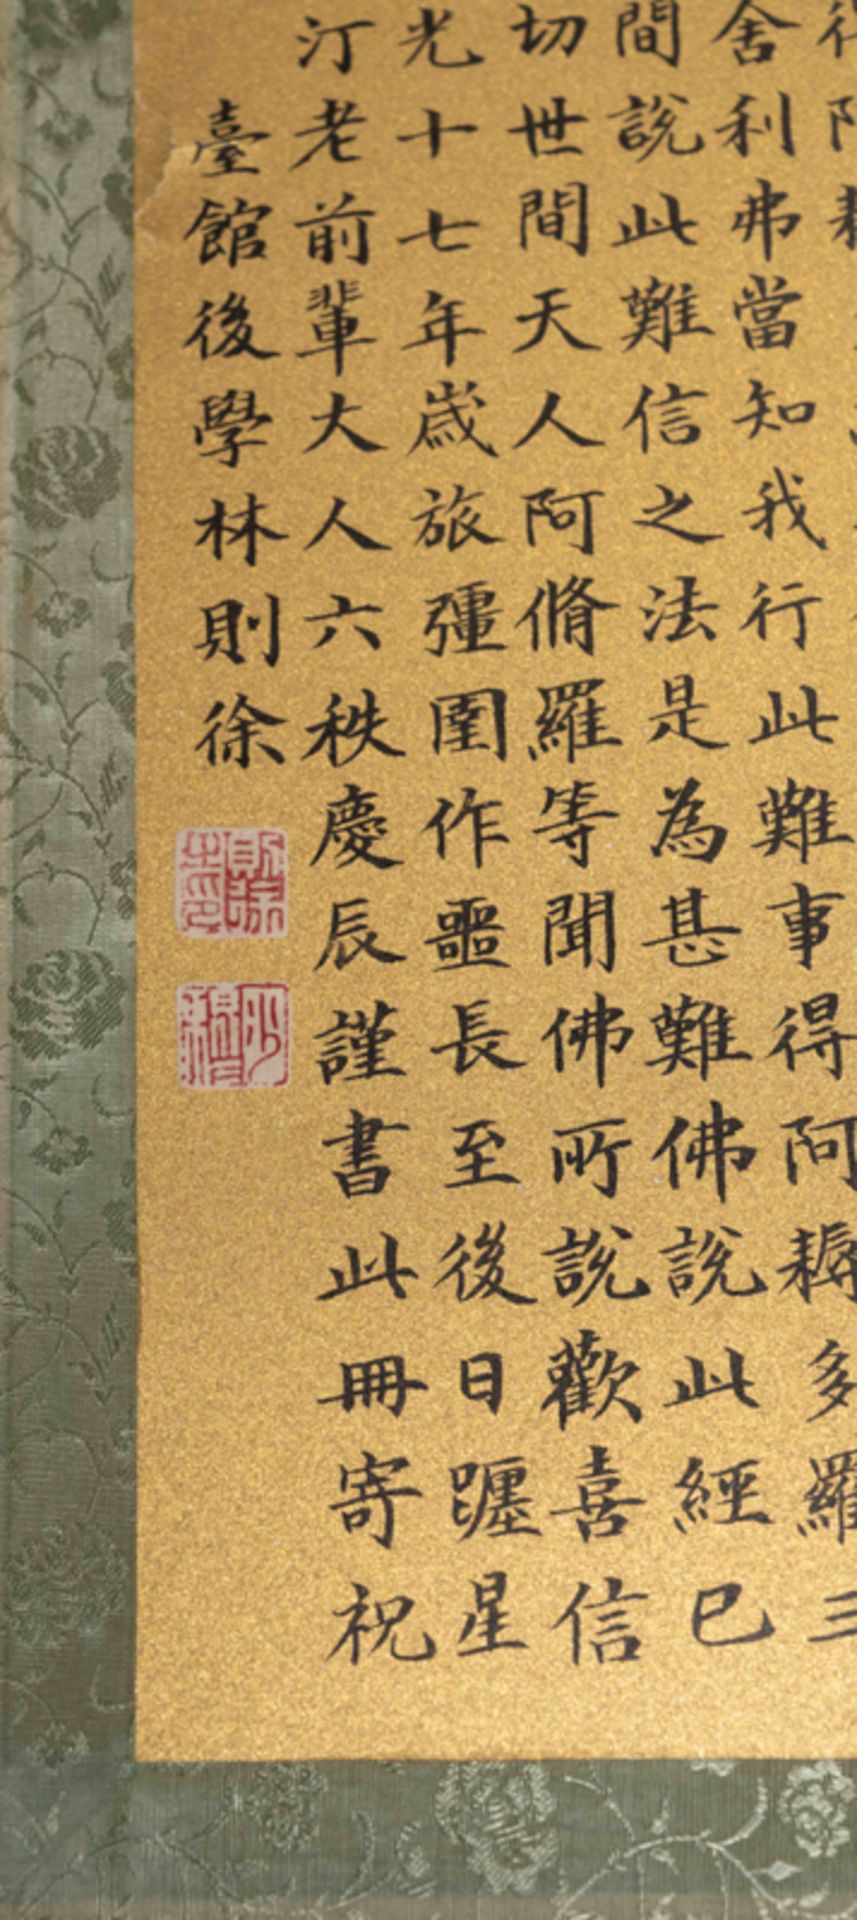 阿耨
舍利弗當知我行此難事得阿耨多羅三
間說此難信之法是為甚難佛說此經已
切世間天人阿脩羅等聞佛所說歡喜信
光十七年歲旅彊圉作噩長至後日躔星
汀老前輩大人六秩慶辰謹書此冊寄祝
臺館後學林則徐